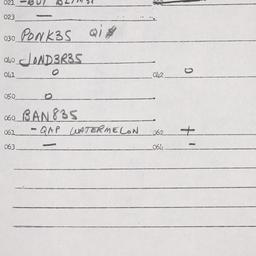 021 -BUT
023 —
030 PONK35 Qi
040 JOND3R35
041 0 042 0
050 0
060 BAN835
061 - QAP WATERMELON 062 +
063 — 064 -